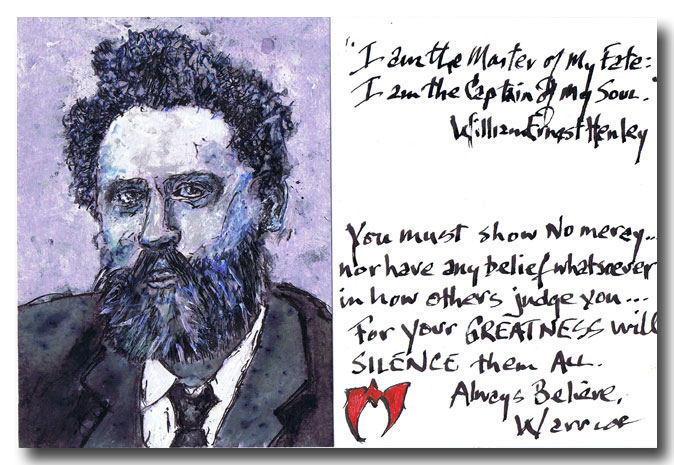 "I am the Master of My Fate:
I am the Captain of My Soul."
William Ernest Henley
You must show No mercy..
nor have any belief whatsoever
in how others judge you...
For your GREATNESS will
SILENCE them ALL.
Always Believe,
Warrior